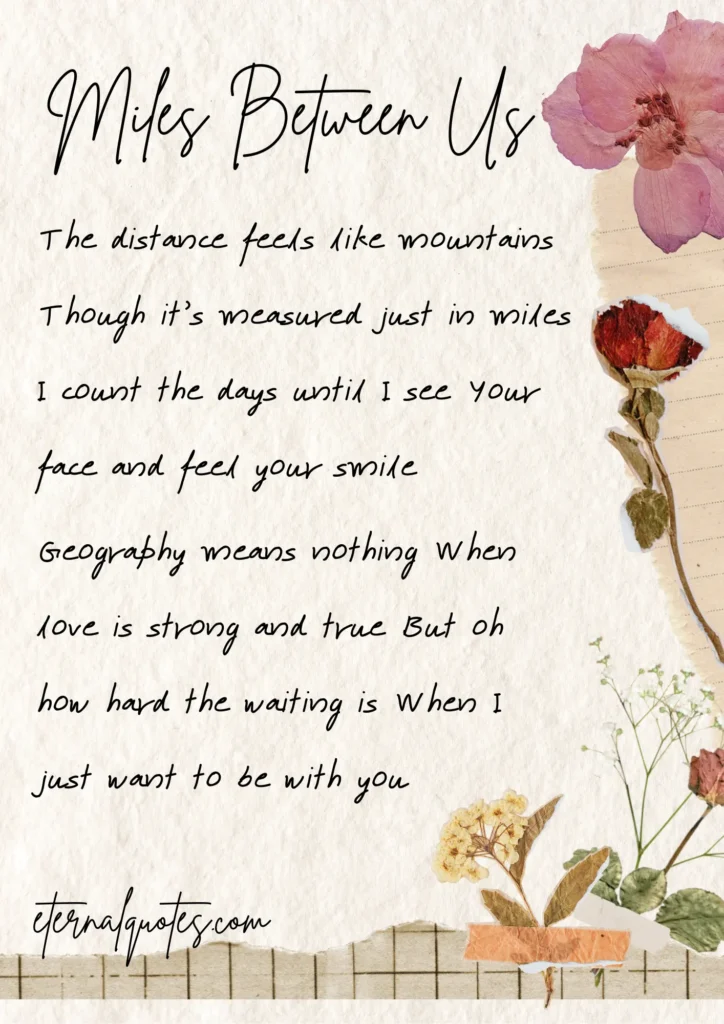 Miles Between Us
The distance feels like mountains
Though it's measured just in miles
I count the days until I see Your
face and feel your smile
Geography means nothing When
love is strong and true But oh
how hard the waiting is When I
just want to be with you
eternalquotes.com